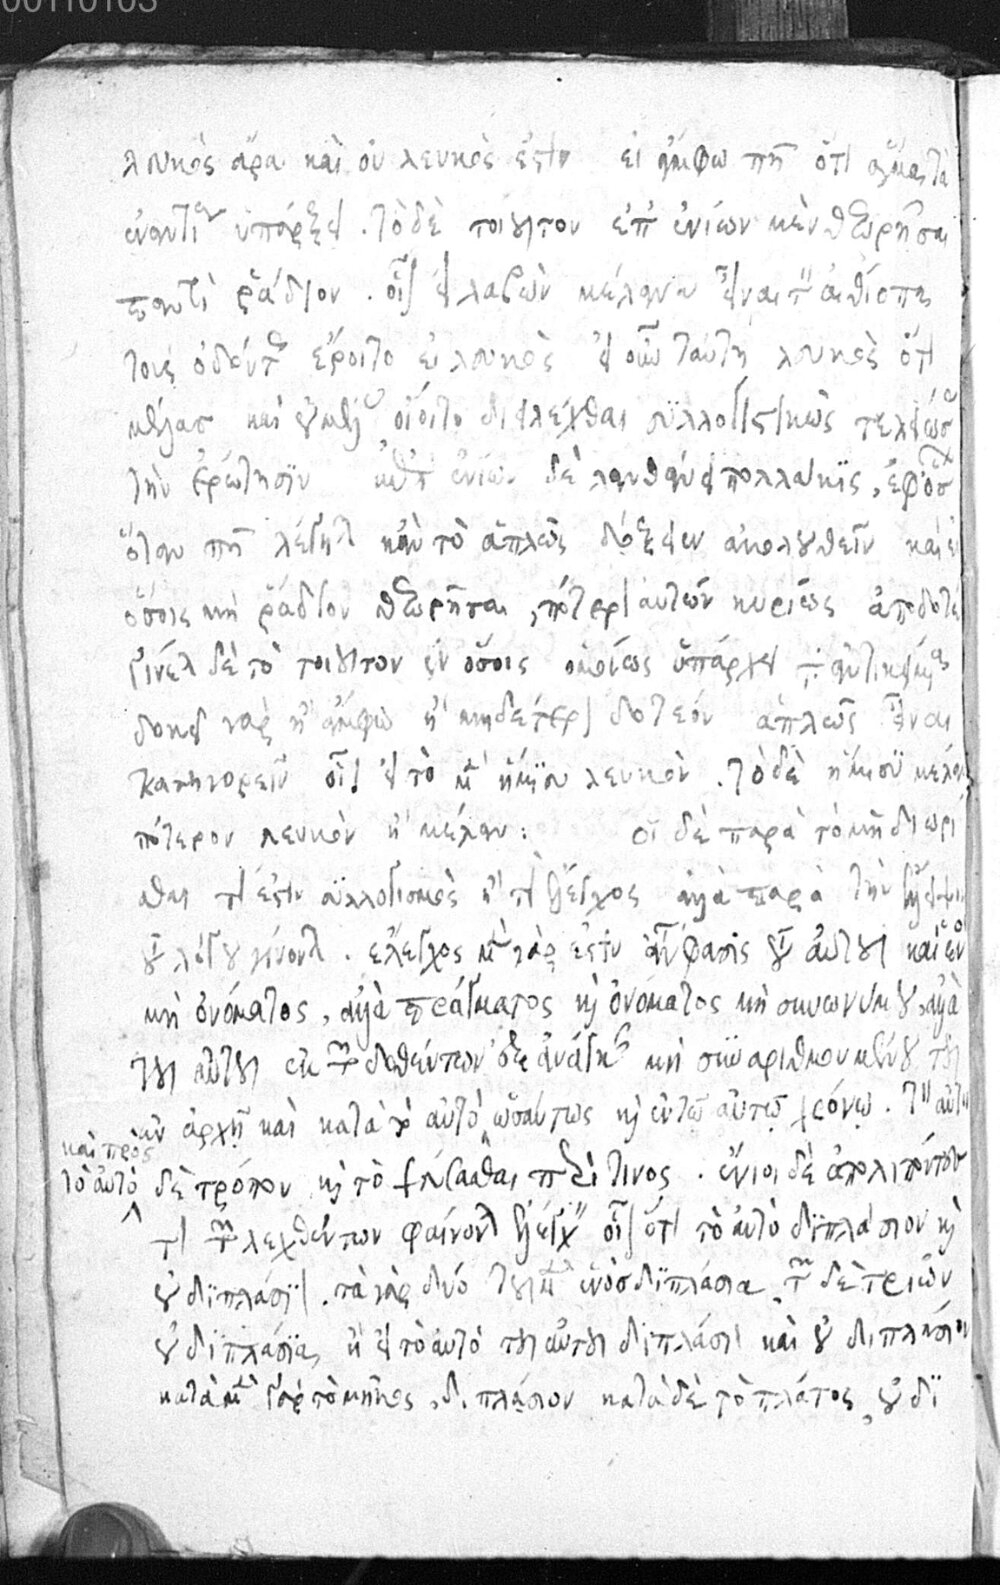 λευκὸς ἄρα καὶ οὐ λευκός ἐστιν εἰ ἄμφω πῆ ὅτι ἅμα τὰ
ἐναντία ὑπάρχει. τὸ δὲ τοιοῦτον ἐπ' ἐνίων μὲν θεωρῆσαι
παντὶ ῥάδιον. οἷον εἰ λαβὼν μέλανα εἶναι τὸν αἰθίοπα
τοὺς ὀδόντας ἔροιτο εἰ λευκὸς εἰ οὖν ταύτῃ λευκὸς ὅτι
μέλας καὶ οὐ μέλας οἴοιτο διειλέχθαι συλλογιστικῶς τελειώσας
τὴν ἐρώτησιν ἐπ' ἐνίων δὲ λανθάνει πολλάκις, ἐφ' ὅσων
ὅταν πῆ λέγηται κἂν τὸ ἁπλῶς δόξειεν ἀκολουθεῖν καὶ ἐν
ὅσοις μὴ ῥάδιον θεωρῆσαι, πότερον αὐτῶν κυρίως ἀποδοτέον
γίνεται δὲ τὸ τοιοῦτον ἐν ὅσοις ὁμοίως ὑπάρχει τὰ ἀντικείμενα
δοκεῖ γὰρ ἢ ἄμφω ἢ μηδέτερον δοτέον ἁπλῶς εἶναι
κατηγορεῖν οἷον εἰ τὸ μὲν ἥμισυ λευκὸν. τὸ δὲ ἥμισυ μέλαν
πότερον λευκὸν ἢ μέλαν: οἱ δὲ παρὰ τὸ μὴ διωρί
σθαι τί ἐστιν συλλογισμὸς ἢ τί ἔλεγχος ἀλλὰ παρὰ τὴν ἔλλειψιν
τοῦ λόγου γίνονται. ἔλεγχος μὲν γάρ ἐστιν ἀντίφασις τοῦ αὐτοῦ καὶ ἑνὸς
μὴ ὀνόματος, ἀλλὰ πράγματος καὶ ὀνόματος μὴ συνωνύμου, ἀλλὰ
τοῦ αὐτοῦ ἐκ τῶν δοθέντων ἐξ ἀνάγκης μὴ συναριθμουμένου τοῦ
ἐν ἀρχῇ καὶ κατὰ τὸ αὐτὸ ὡσαύτως καὶ ἐν τῷ αὐτῷ χρόνῳ. τὸν αὐτὸν
καὶ πρὸς
τὸ αὐτὸ
δὲ τρόπον καὶ τὸ ψεύσασθαι περί τινος. ἔνιοι δὲ ἀπολιπόντες
τι τῶν λεχθέντων φαίνονται ἐλέγχειν οἷον ὅτι τὸ αὐτὸ διπλάσιον καὶ
οὐ διπλάσιον. τὰ γὰρ δύο τοῦ μὲν ἑνὸς διπλάσια, τῶν δὲ τριῶν
οὐ διπλάσια, ἢ εἰ τὸ αὐτὸ τοῦ αὐτοῦ διπλάσιον καὶ οὐ διπλάσιον
κατὰ μὲν γὰρ τὸ μῆκος, διπλάσιον κατὰ δὲ τὸ πλάτος, οὐ δι